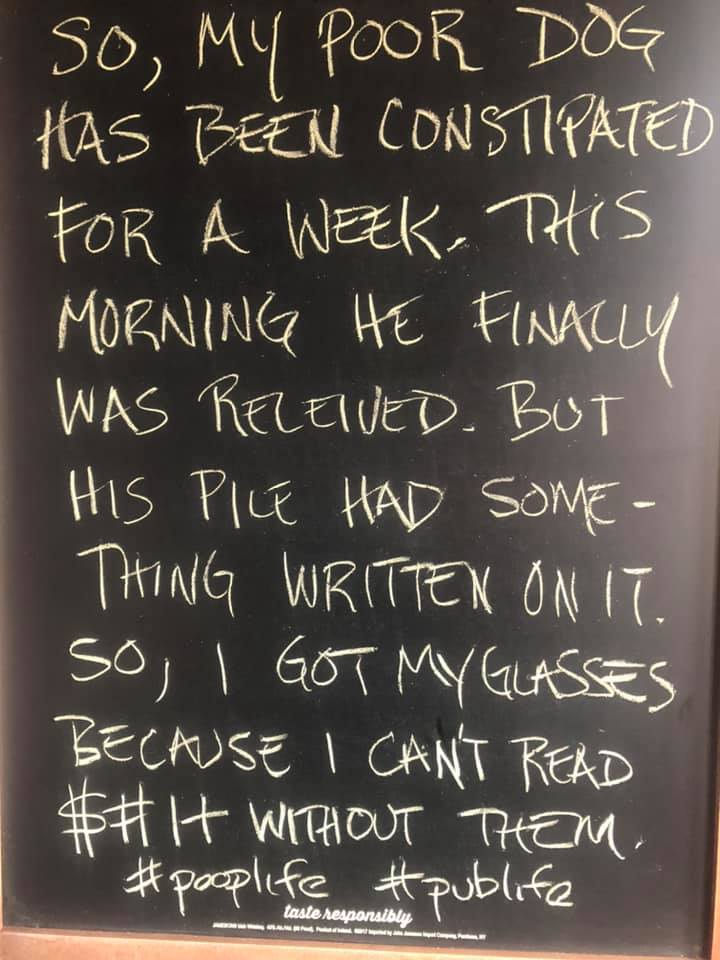 SO, MY POOR DOG
HAS BEEN CONSTIPATED
FOR A WEEK. THIS
MORNING HE FINALLY
WAS RELEIVED. BUT
HIS PILE HAD SOME-
THING WRITTEN ON IT.
SO, I GOT MY GLASSES
BECAUSE I CAN'T READ
$#!+ WITHOUT THEM.
#pooplife #publife
taste responsibly